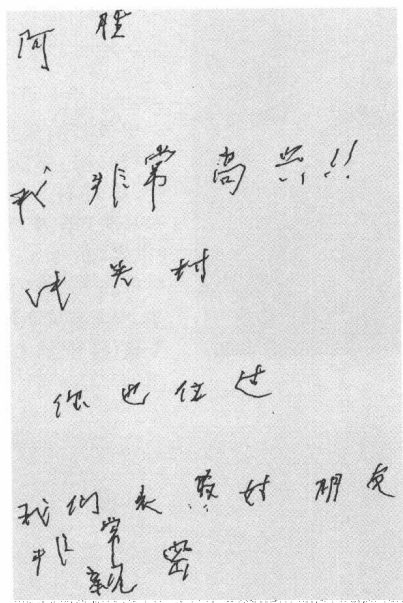 阿胜
我非常高兴!!
村
你也住过
我们最好朋友
非常
亲密